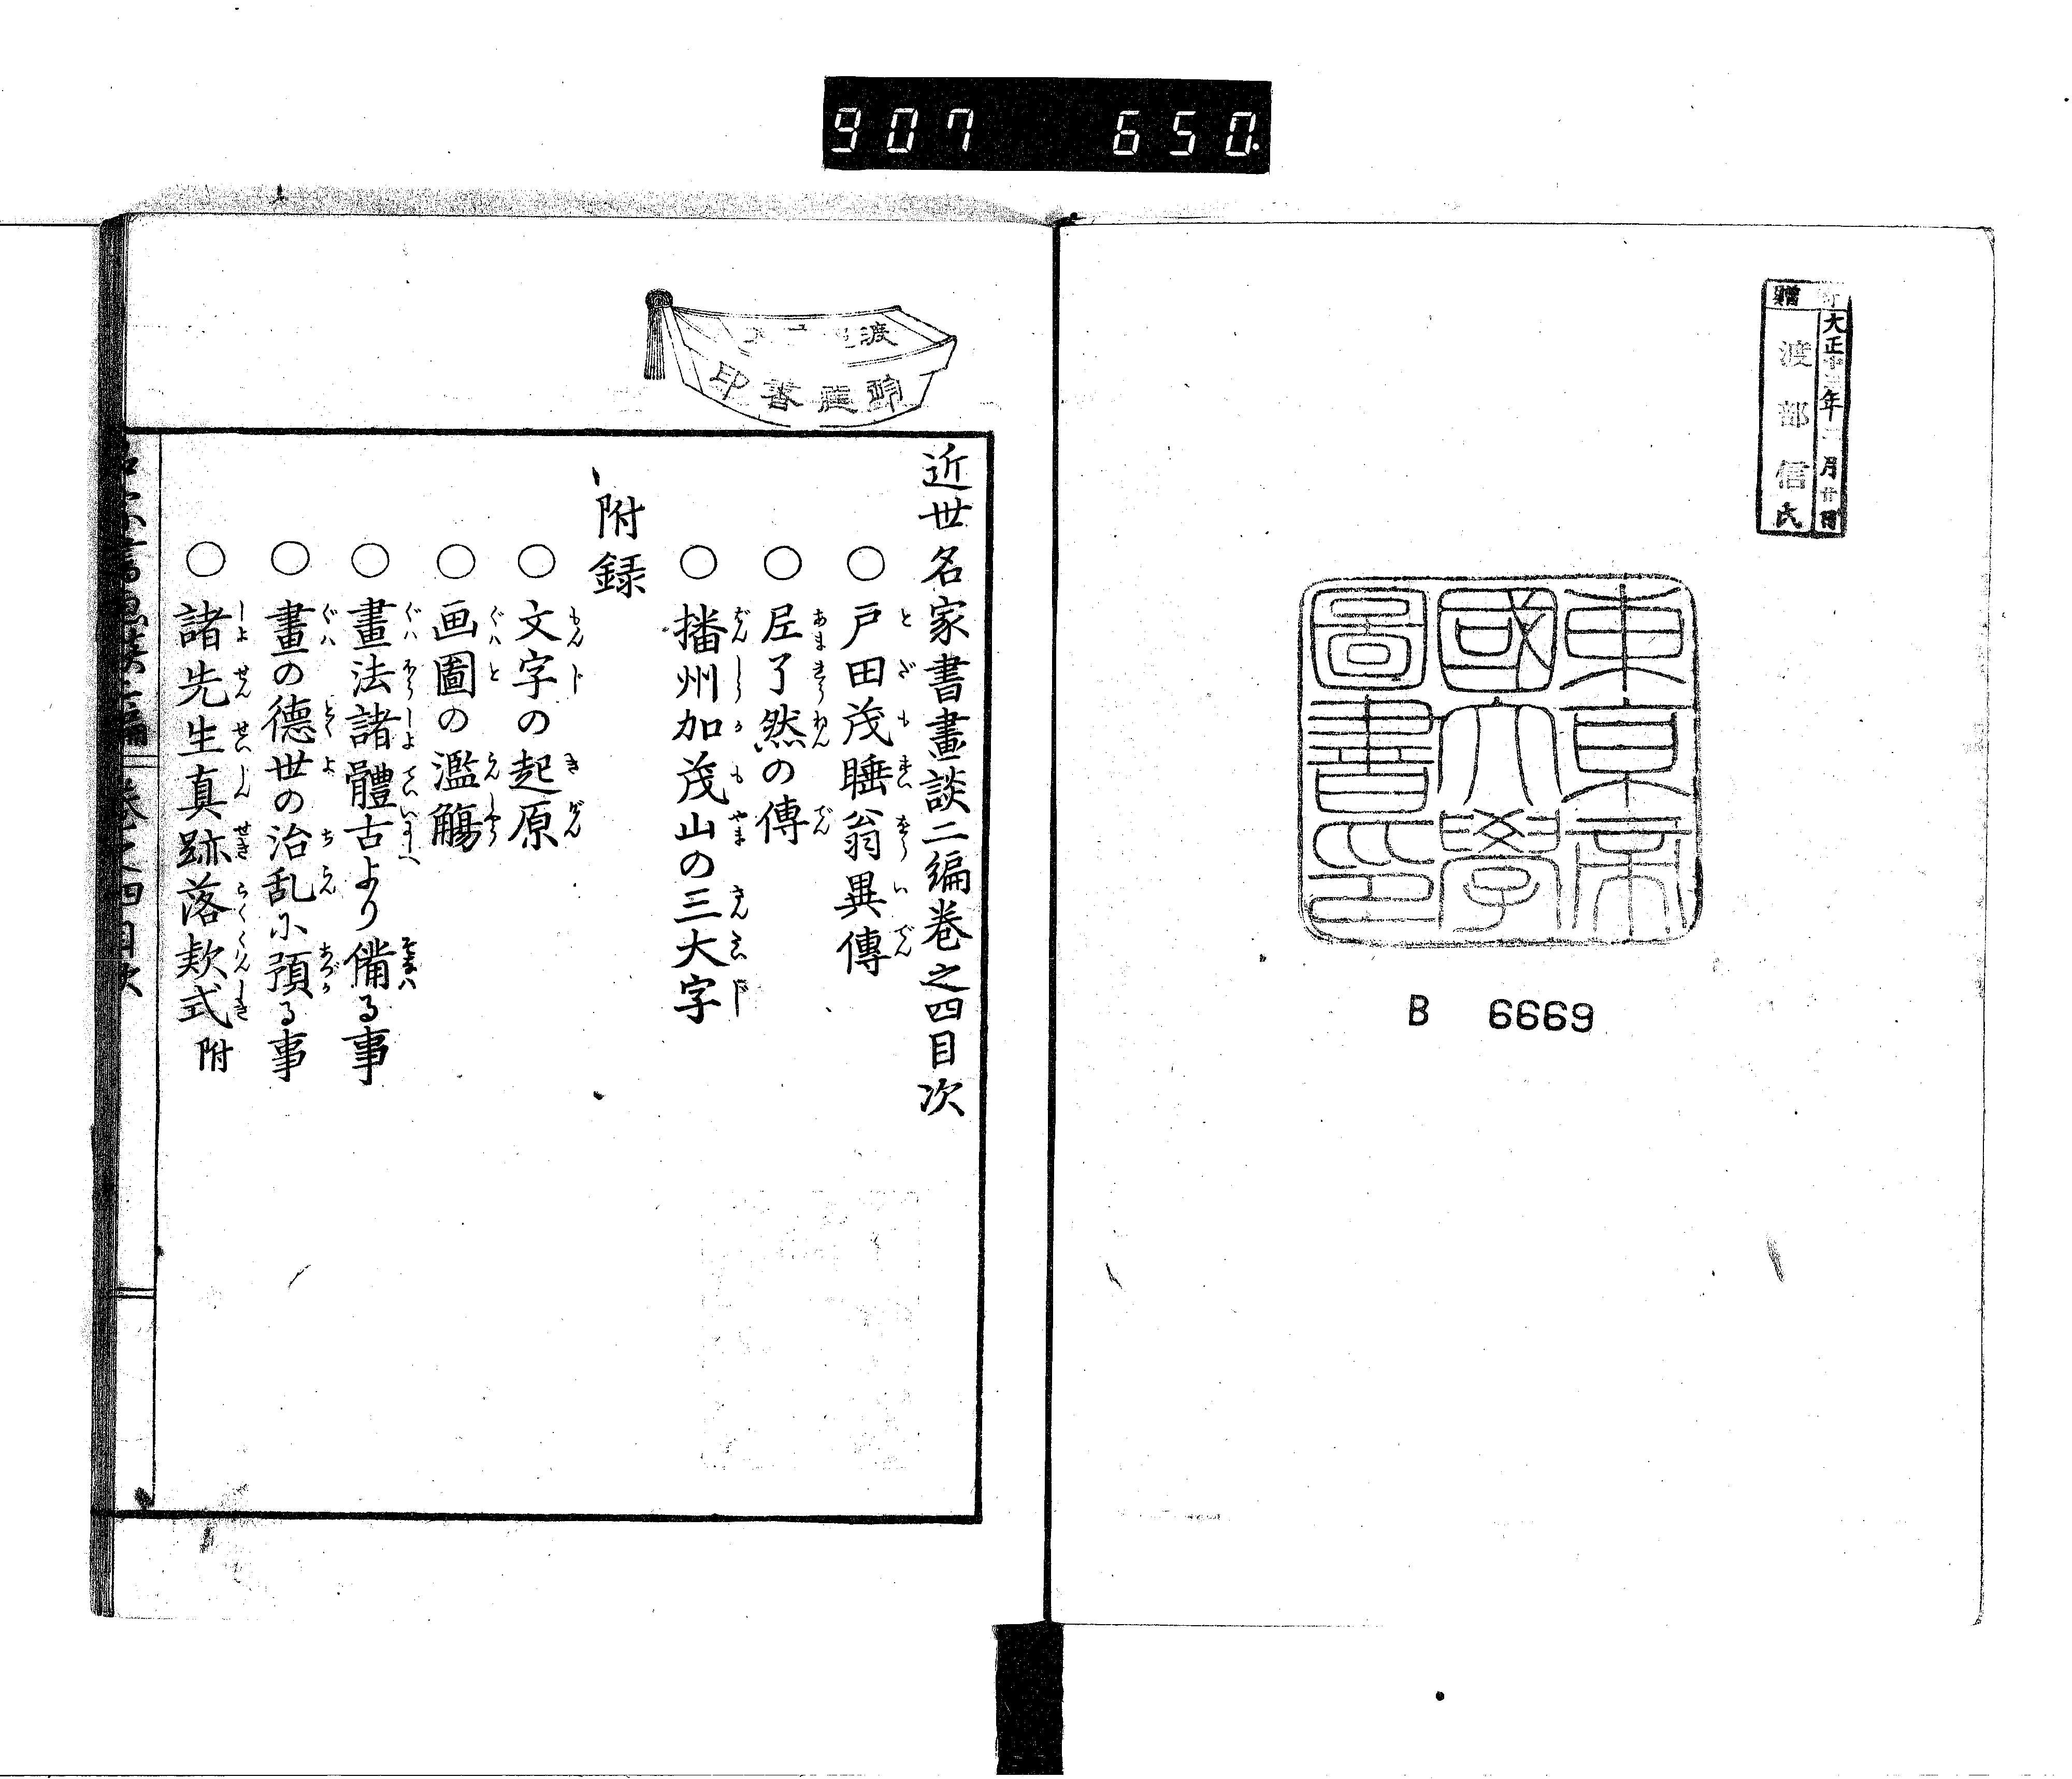 907 650
贈
大正十三年二月廿日
渡部信氏
東京帝
國大學
圖書印
B 6669
渡
印
近世名家書畫談二編巻之四目次
○戸田茂睡翁異傳
○尼了然の傳
○播州加茂山の三大字
附録
○文字の起原
○画圖の濫觴
○畫法諸體古より備る事
○畫の德世の治乱に預る事
○諸先生真跡落款式附